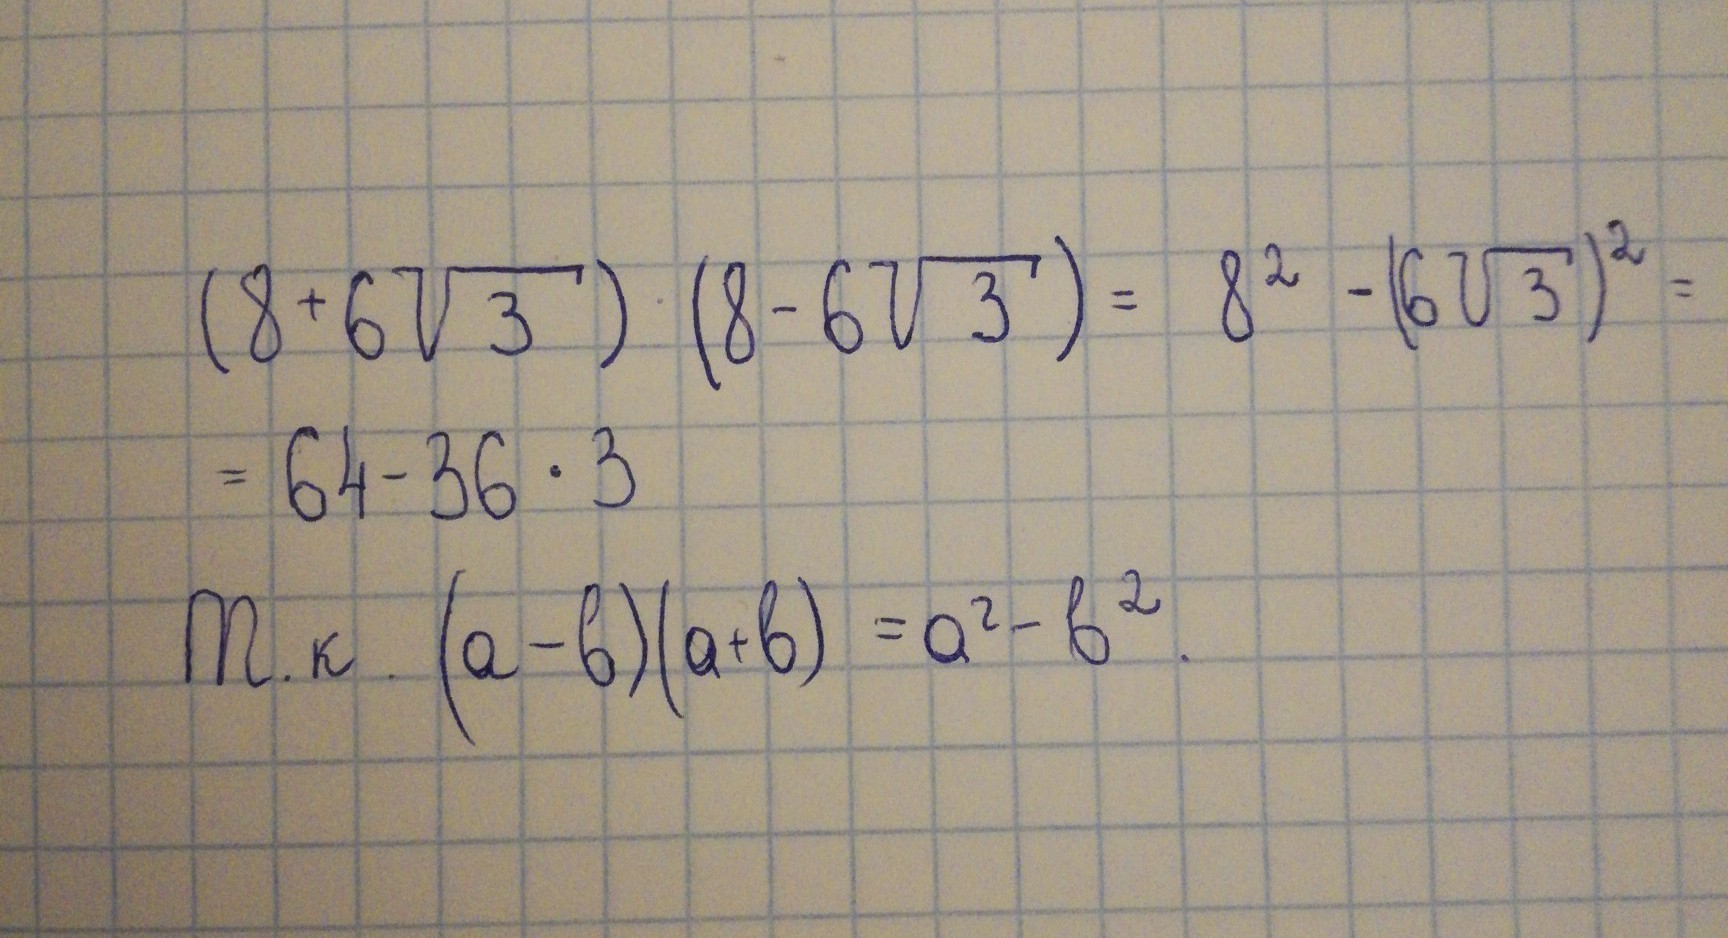 (8+6√3) · (8-6√3) = 8² - (6√3)² =
= 64-36 · 3
Т.к. (a-b)(a+b) = a² - b².